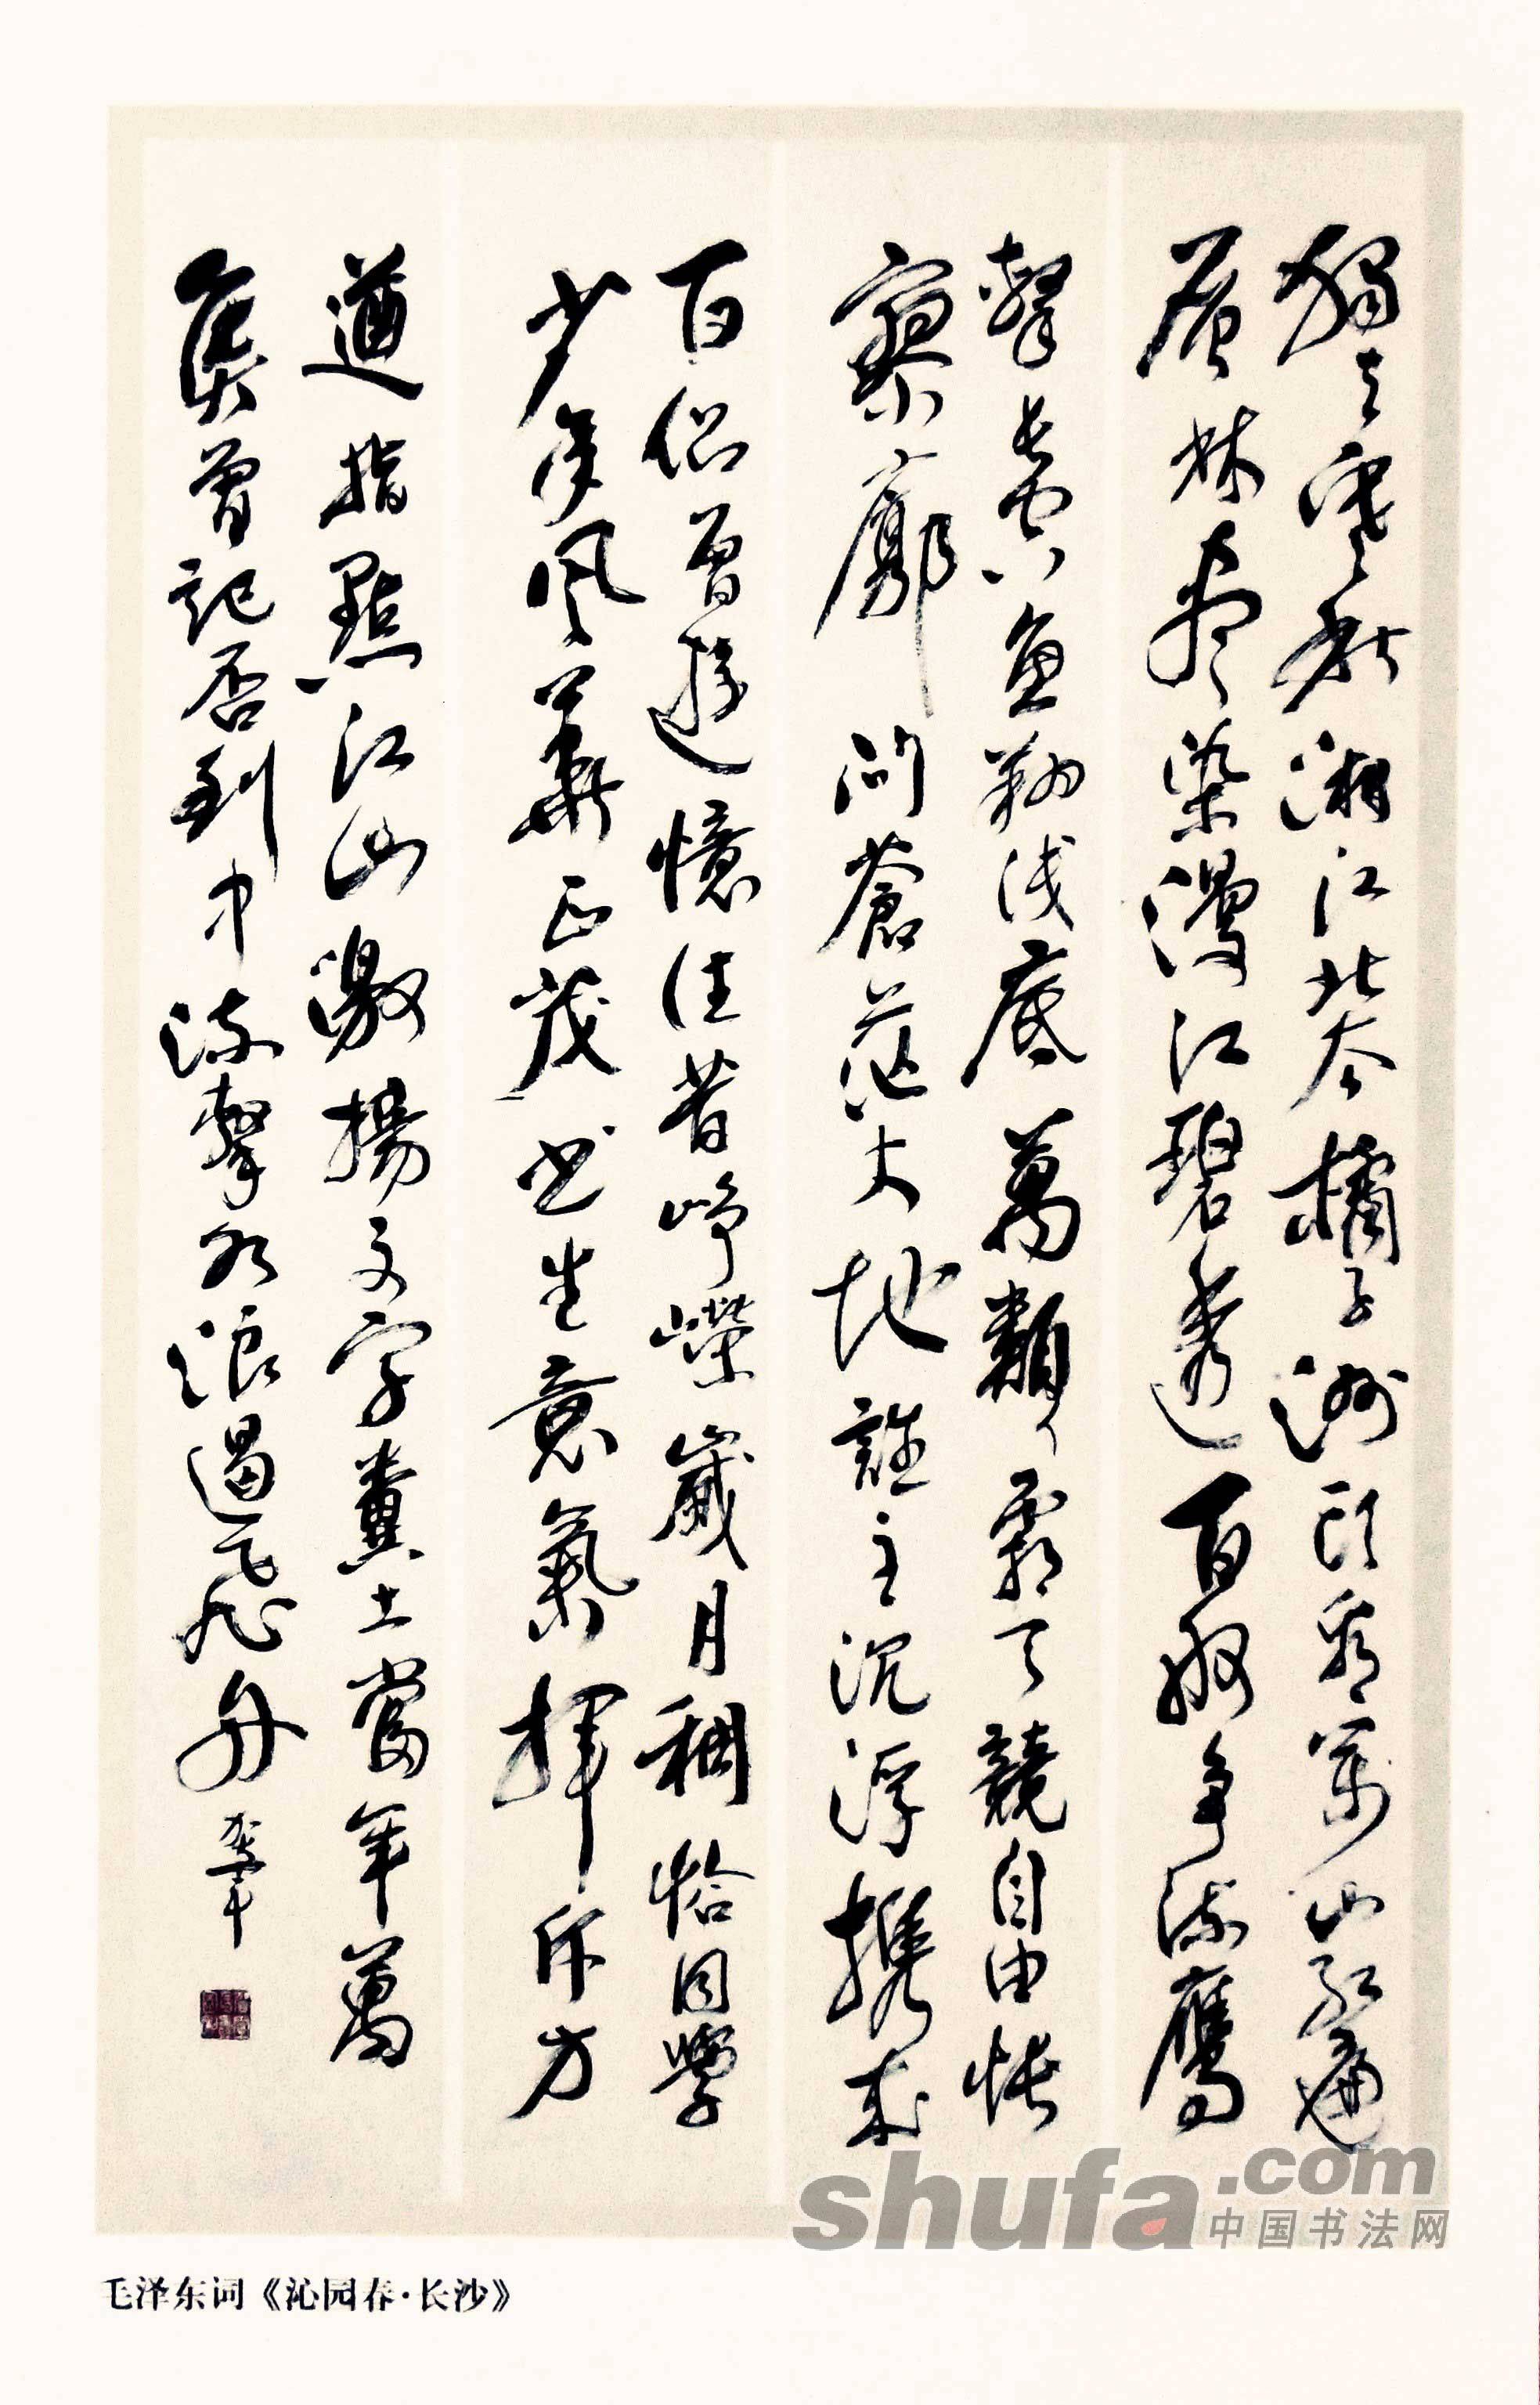 獨立寒秋湘江北去橘子洲頭看萬山紅遍
層林盡染漫江碧透百舸爭流鷹
擊長空魚翔淺底萬類霜天競自由悵
寥廓問蒼茫大地誰主沉浮携來
百侣曾遊憶往昔崢嶸嵗月稠恰同學
少年風華正茂书生意氣揮斥方
遒指點江山激揚文字糞土當年萬
户侯曾記否到中流擊水浪遏飛舟
毛泽东词《沁园春·长沙》
shufa.com
中国书法网